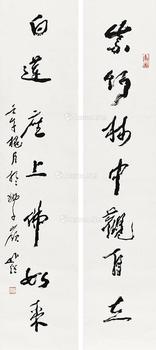 紫竹林中觀自在
白蓮座上佛如來
壬午槐月於獅子嶺